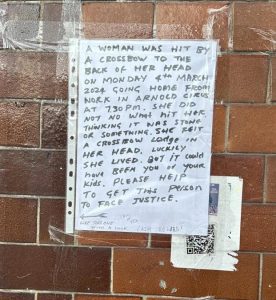 A WOMAN WAS HIT BY
A CROSSBOW TO THE
BACK OF HER HEAD
ON MONDAY 4th MARCH
2024 GOING HOME FROM
WORK IN ARNOLD CIRCUS
AT 7.30PM. SHE DID
NOT NO WHAT HIT HER
THINKING IT WAS STONE
OR SOMETHING. SHE FELT
A CROSSBOW LODGE IN
HER HEAD. LUCKILY
SHE LIVED. BUT IT could
have BEEN YOU OR YOUR
KIDS. PLEASE HELP
TO GET THIS PERSON
TO FACE JUSTICE.